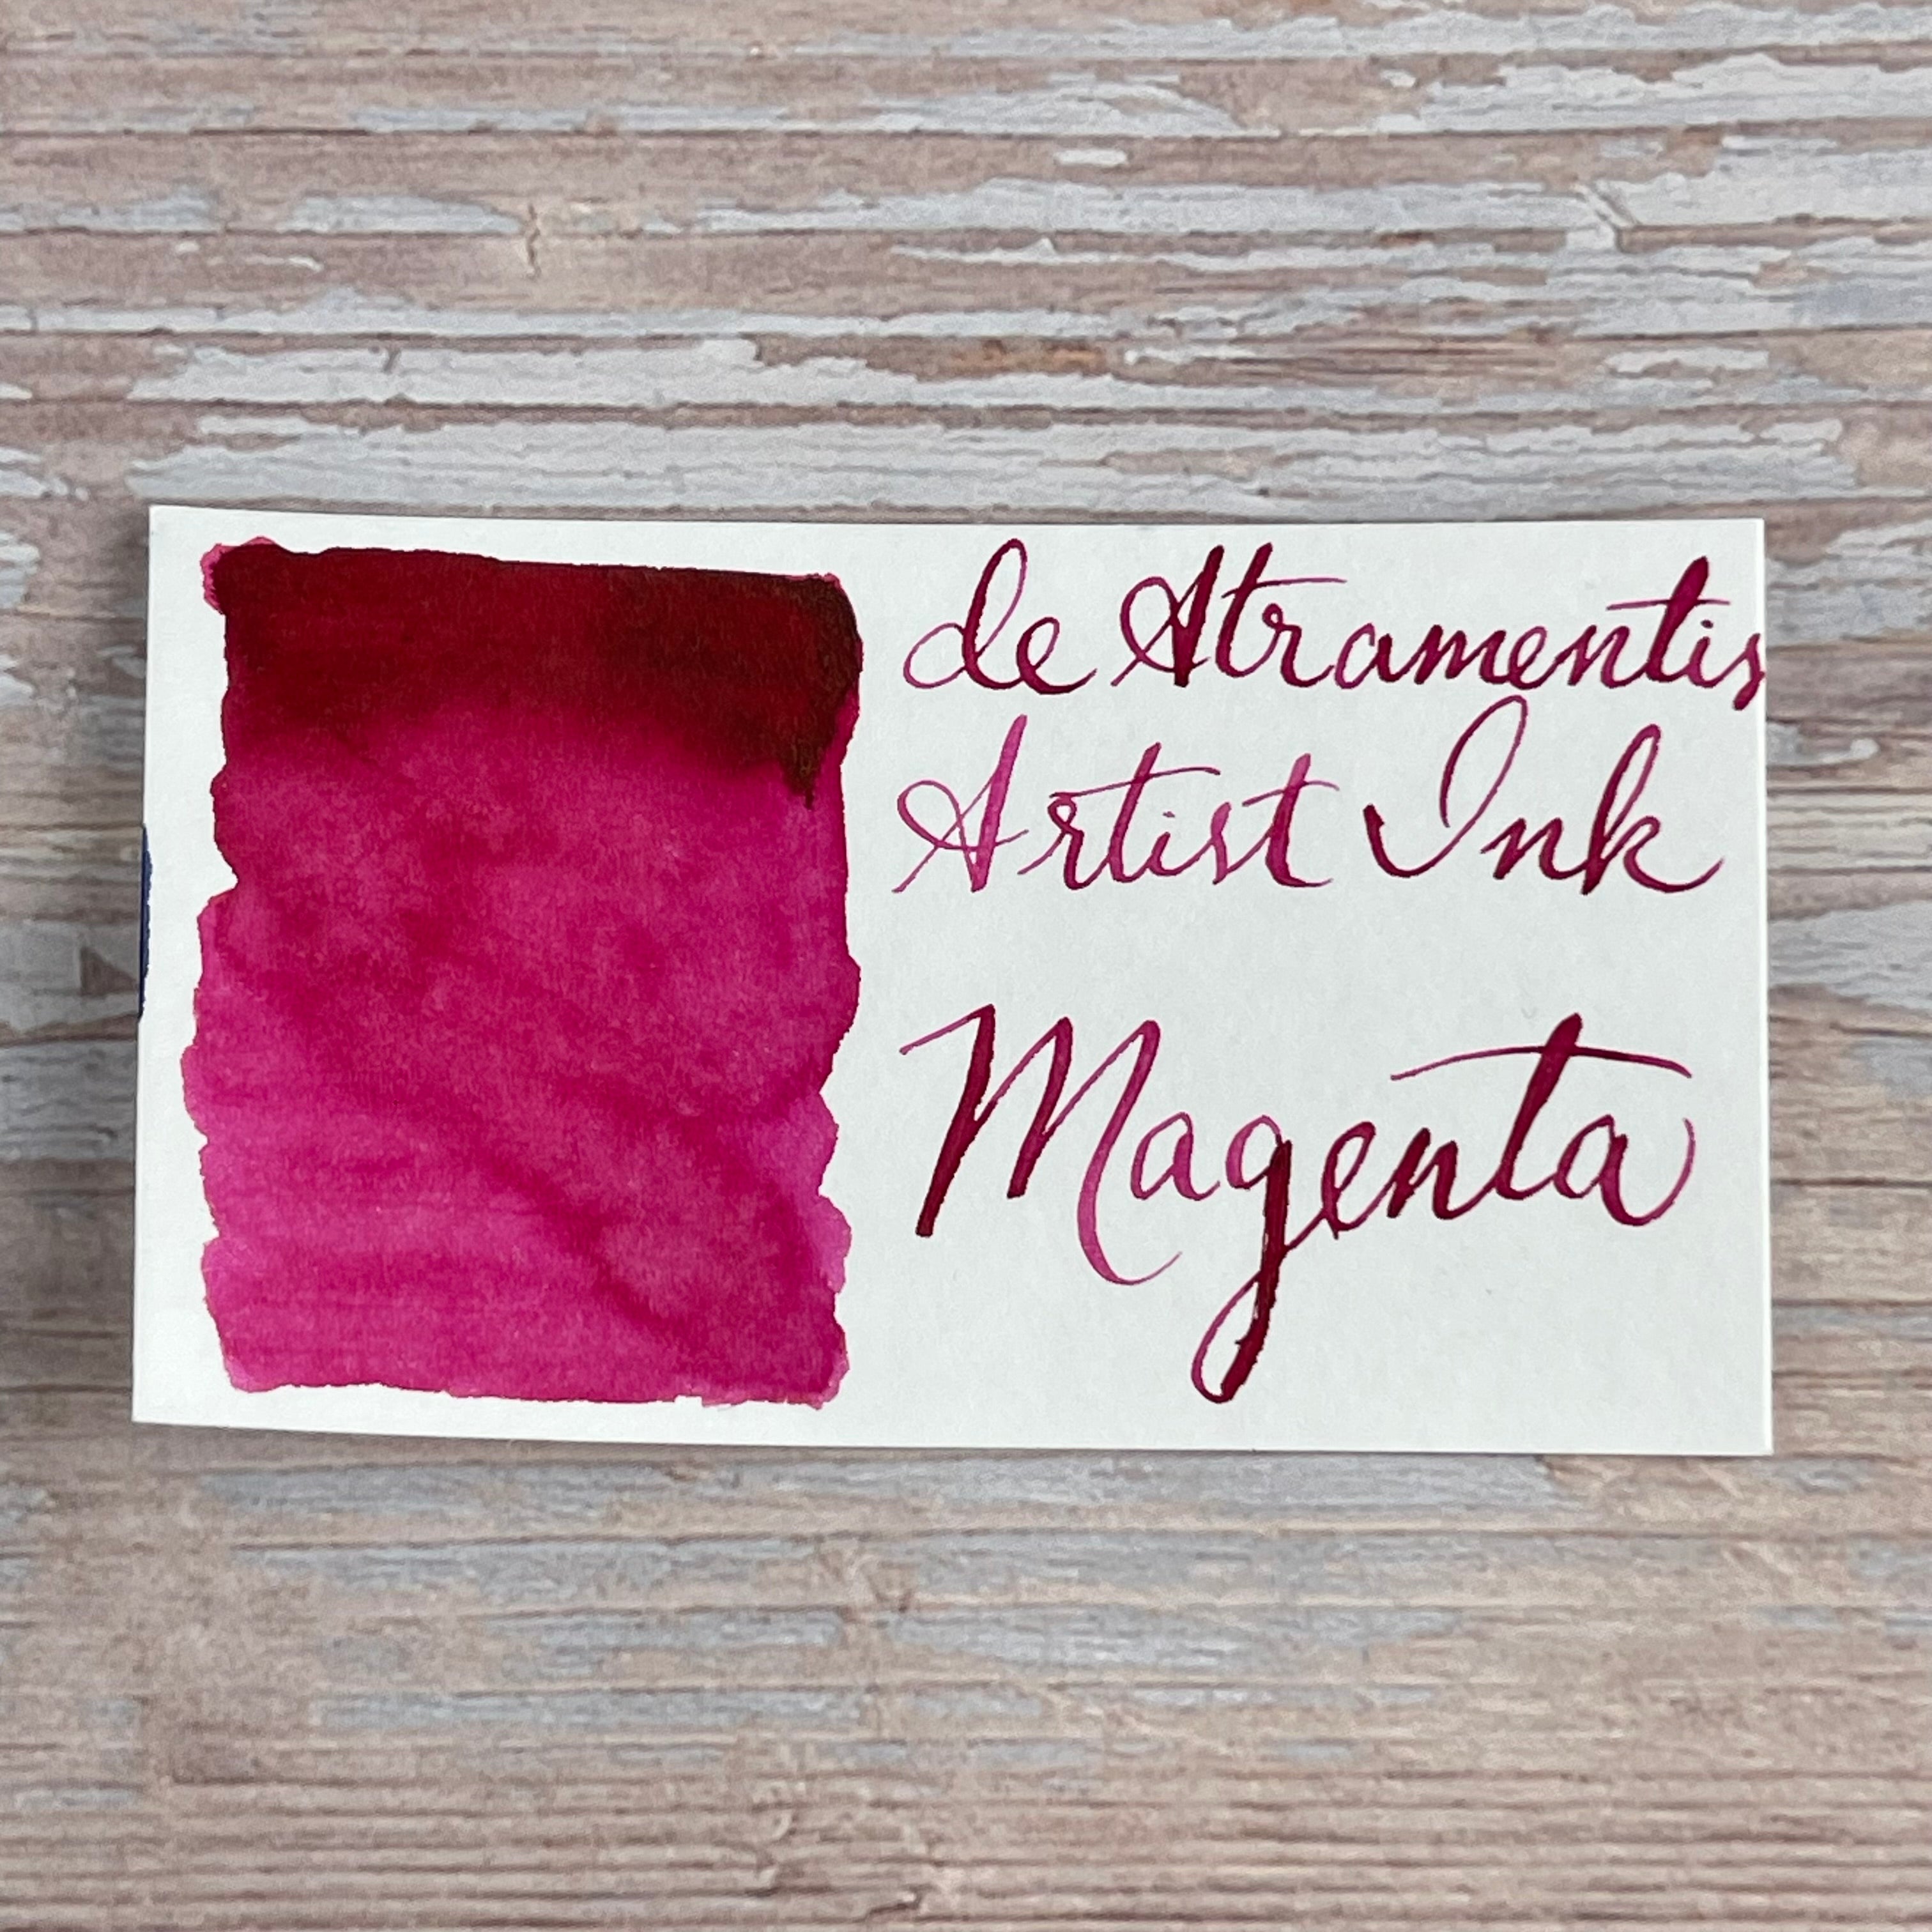 de Atramentis
Artist Ink
Magenta